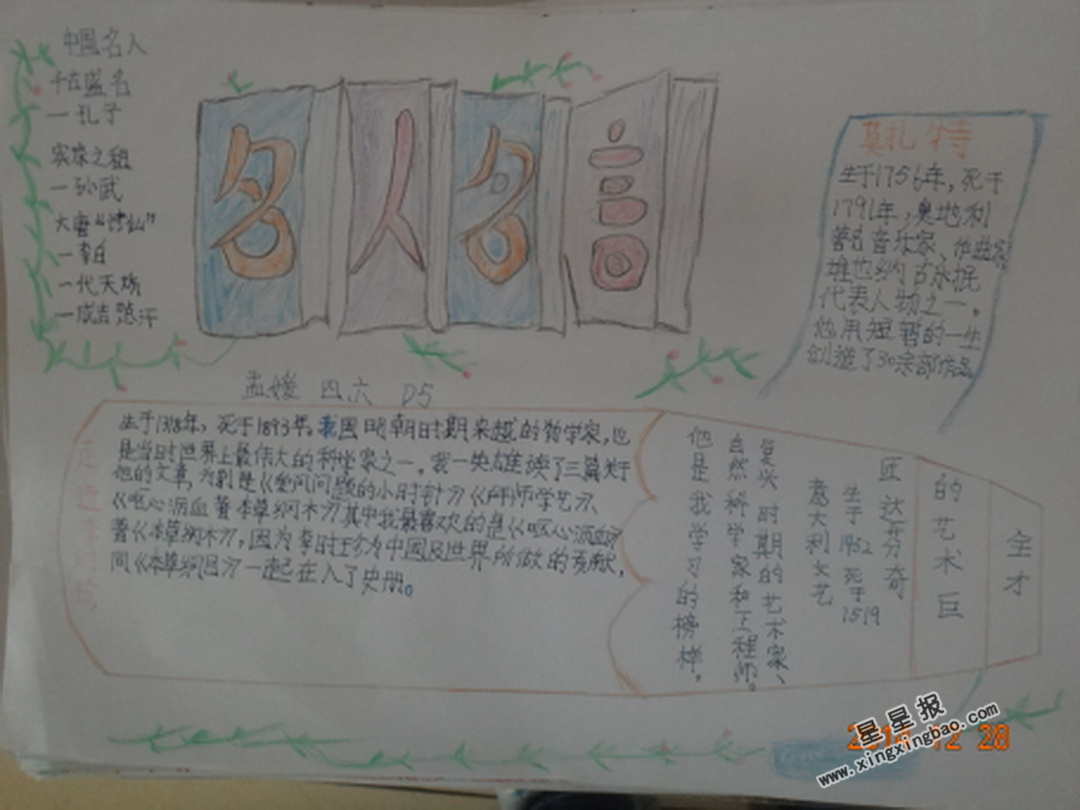 中国名人
千古盛名
一孔子
一孙武
大唐“诗仙”
一李白
一代天骄
一成吉思汗
名人名言
莫扎特
生于1756年，死于
1791年，奥地利
著名音壮家，作曲家
代表人物之一。
他用短暂的一生
创造了30余部作品
孟媛 四六 05
生于1318年，死于1893年。我国明朝时期来越的物学家，也
是当时世界上最伟大的科学家之一。我一共读了三篇关于
他的文章，为别是《爱问问题的小时针》《拜师学艺》、
《呕心沥血著本草纲木》其中我最喜欢的是《呕心沥血
著《本草纲木》，因为李时珍为中国及世界所做的贡献，
同《本草纲目》一起在入了史册。
全才
的艺术巨
匠 达芬奇
生于1452 死于1519
意大利文艺
复兴时期的艺术家、
自然科学家和工程师。
他是我学习的榜样。
星星报
www.xingxingbao.com
12 28